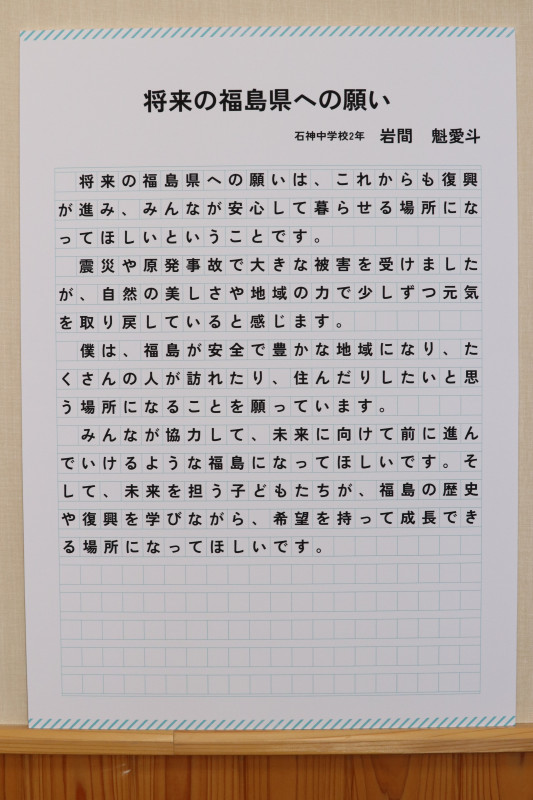 将来の福島県への願い
石神中学校2年 岩間 魁愛斗
将来の福島県への願いは、これからも復興
が進み、みんなが安心して暮らせる場所にな
ってほしいということです。
震災や原発事故で大きな被害を受けました
が、自然の美しさや地域の力で少しずつ元気
を取り戻していると感じます。
僕は、福島が安全で豊かな地域になり、た
くさんの人が訪れたり、住んだりしたいと思
う場所になることを願っています。
みんなが協力して、未来に向けて前に進ん
でいけるような福島になってほしいです。そ
して、未来を担う子どもたちが、福島の歴史
や復興を学びながら、希望を持って成長でき
る場所になってほしいです。